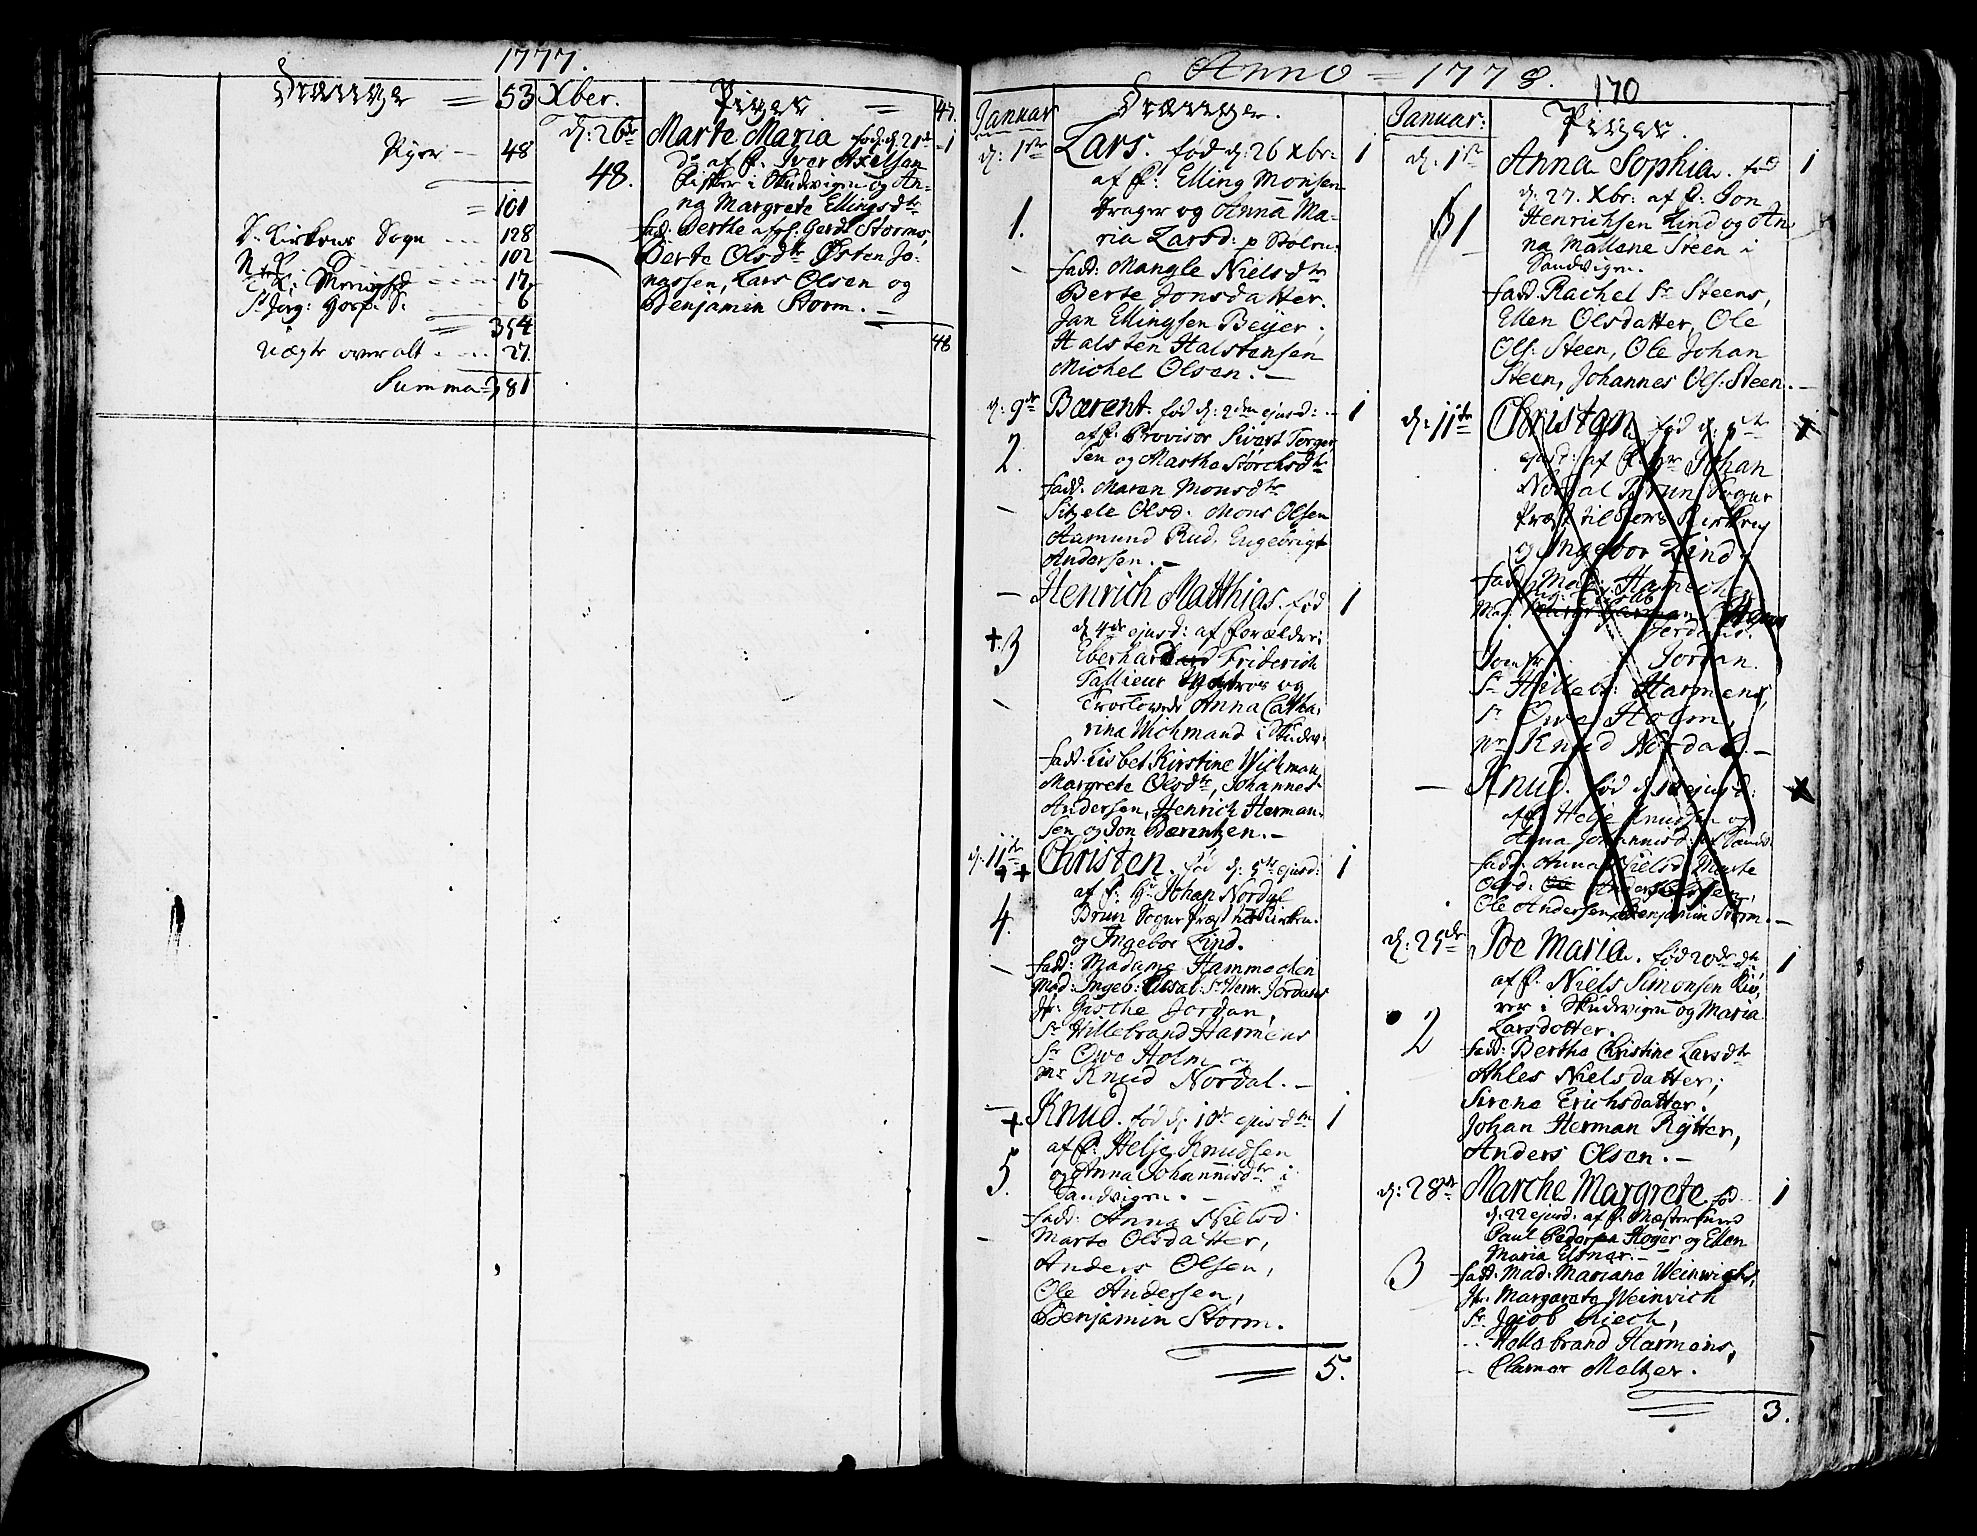 1777.
Drænge = 53
Piger — 48
= 101
D. Kirkens Sogn ... 128
N. K. D. ... 102
St. Jørg: Hosp. S. 6
354
Uægte overalt .... 27.
Summa 381
Xber. Piger = 47.
d: 26de Marte Maria fød d: 21de — 1
48. do af F. Iver Axelsen
Fisker i Skudvigen og An-
na Margrete Ellingsdtr
fad: Berthe afg: Gerdt Storms,
Berte Olsdtr Østen Jo-
nassen, Lars Olsen og
Benjamin Storm. —
48
Anno = 1778.
170
Januar Drænge.
d: 1ste Lars. fød d: 26 Xbr: 1
af F: Elling Monsen
1. Drager og Anna Ma-
ria Larsd: p Stølen.
fadd: Mangle Nielsdtr
Berte Jonsdatter.
Jan Ellingsen Beijer,
Halsten Halstensen
Michel Olsen. —
d: 9de Bærent. fød d: 2den ejusd: 1
af F. Provisor Sivert Torger
2. sen og Martha Størchsdtr
fadd. Maren Monsdtr
Sitzele Olsd: Mons Olsen
Aamund Rud, Engebrigt
Andersen. —
— Henrich Matthias. fød 1
d 4de ejusd: af Forældre:
+ 3 Eberhard Friderich
Tallieur Matros og
Trolovede Anna Catha-
rina Wichmand i Skudv:
fadd. Lisbet Kirstine Wichman
Margrete Olsdtr, Johannes
Andersen, Henrich Herman-
sen og Jon Bærentzen. —
d: 11te Christen. fød d: 5te ejusd: 1
++ af F: Hr Johan Nordal
4. Brun Sogne Præst til Kirken
og Ingebor Lind.
fadd: Madame Hammechen
Mad: Ingeb: Ellisab: Sr Henr. Jordans
Jfr: Gische Jordan,
Sr Hillebrand Harmens
Sr Owe Holm og
Mr Knud Nordal. —
— + Knud. fød d: 10de ejusdem 1
af F: Helje Knudsen
5. og Anna Johannisdtr i
Sandvigen. —
fadd: Anna Nielsd:
Marte Olsdatter,
Anders Olsen,
Ole Andersen,
Benjamin Storm.
5.
Januar: Piger.
d: 1ste Anna Sophia. fød 1
d. 27. Xbr: af F: Jon
1 Henrichsen Lind og An-
na Mallene Steen i
Sandvigen.
fadd. Rachel Sr Steens,
Ellen Olsdatter, Ole
Ols: Steen, Ole Johan
Steen, Johannes Ols: Steen. —
d: 11te Christan fød d. 5te
ejusd: af F. Hr Johan
Nordal Brun Sogne
Præst til Kirken
og Ingebor Lind.
fadd. Mad: Hamechen
Jordans.
Jomfr Jordan.
Sr Hilleb: Harmens,
Sr Owe Holm,
Mr Knud Nordal. —
— Knud. fød d 10 ejusd:
af F. Helje Knudsen og
Anna Johannisd: i Sandv:
fadd: Anna Nielsd Marte
Olsd: Anders Olsen,
Ole Andersen, Benjamin Storm. —
d: 25de Ide Maria. fød 20de do 1
af F. Niels Simonsen
i Skudvigen og Maria
2 Larsdatter.
fadd: Berthe Christine Larsdtr
Ahles Nielsdatter,
Sirene Erichsdatter.
Johan Herman Rÿtter,
Anders Olsen. —
d: 28de Marche Margrete fød 1
d: 22 ejusd: af F. Mæstersvend
Paul Pedersen Høger og Ellen
Maria Elsner. —
3 fadd. Mad: Mariane Weinwichs,
Jfr: Margareta Weinvich
Sr Jacob Kiech,
— Hillebrand Harmens,
— Clamer Meltzer.
3.